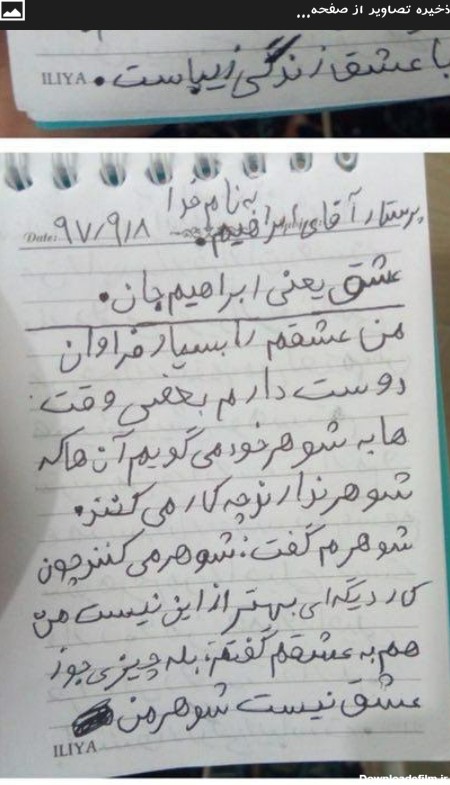 ذخیره تصاویر از صفحه...
با عشق زندگی زیباست.
ILIYA
به نام خدا
پرستار آقای ابراهیم.
Date: ۹۷/۹/۸
عشق یعنی ابراهیم جان.
من عشقم را بسیار فراوان
دوست دارم بعضی وقت
ها به شوهر خود می گویم آن ها که
شوهر ندارند چه کار می کنند.
شوهرم گفت: شوهر می کنند چون
کار دیگه ای بهتر از این نیست من
هم به عشقم گفتم: بله چیزی جز
عشق نیست شوهر من
ILIYA
Downloadefilm.ir